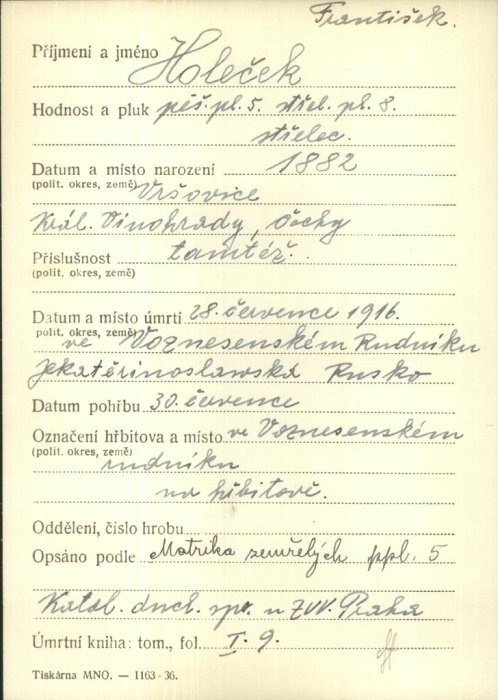 František.
Příjmení a jméno Holeček
Hodnost a pluk pěš. pl. 5. střel. pl. 8.
střelec.
Datum a místo narození 1882
(polit. okres, země) Vršovice
Král. Vinohrady, Čechy
Příslušnost tamtéž.
(polit. okres, země)
Datum a místo úmrtí 28. července 1916.
polit. okres, země) ve Voznesenském Rudniku
Jekatěrinoslawská Rusko
Datum pohřbu 30. července
Označení hřbitova a místo ve Voznesenském
(polit. okres, země) rudniku
na hřbitově.
Oddělení, číslo hrobu
Opsáno podle Matrika zemřelých ppl. 5
Katol. duch. spr. u ZVV. Praha
Úmrtní kniha: tom., fol. I. 9.
Tiskárna MNO. — 1163 - 36.